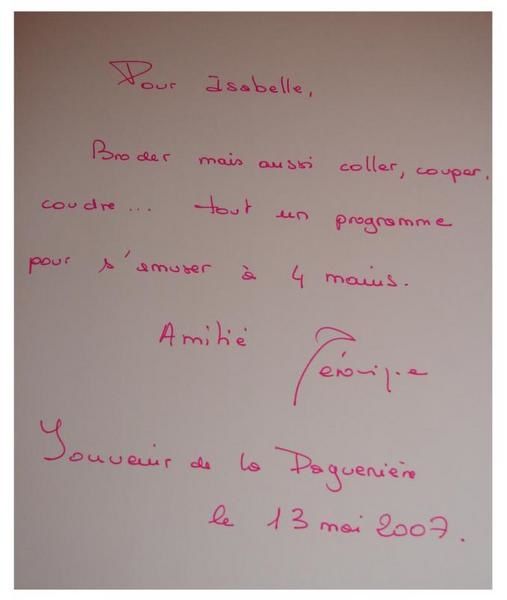 Pour Isabelle,
Broder mais aussi coller, couper,
coudre... tout un programme
pour s'amuser à 4 mains.
Amitié
Souvenir de la Daguenière
le 13 mai 2007.